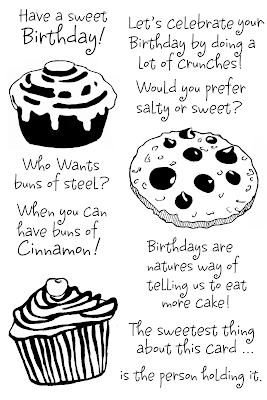 Have a sweet
Birthday!
Let's celebrate your
Birthday by doing a
lot of Crunches!
Would you prefer
salty or sweet?
Who Wants
buns of steel?
When you can
have buns of
Cinnamon!
Birthdays are
natures way of
telling us to eat
more cake!
The sweetest thing
about this card ...
is the person holding it.